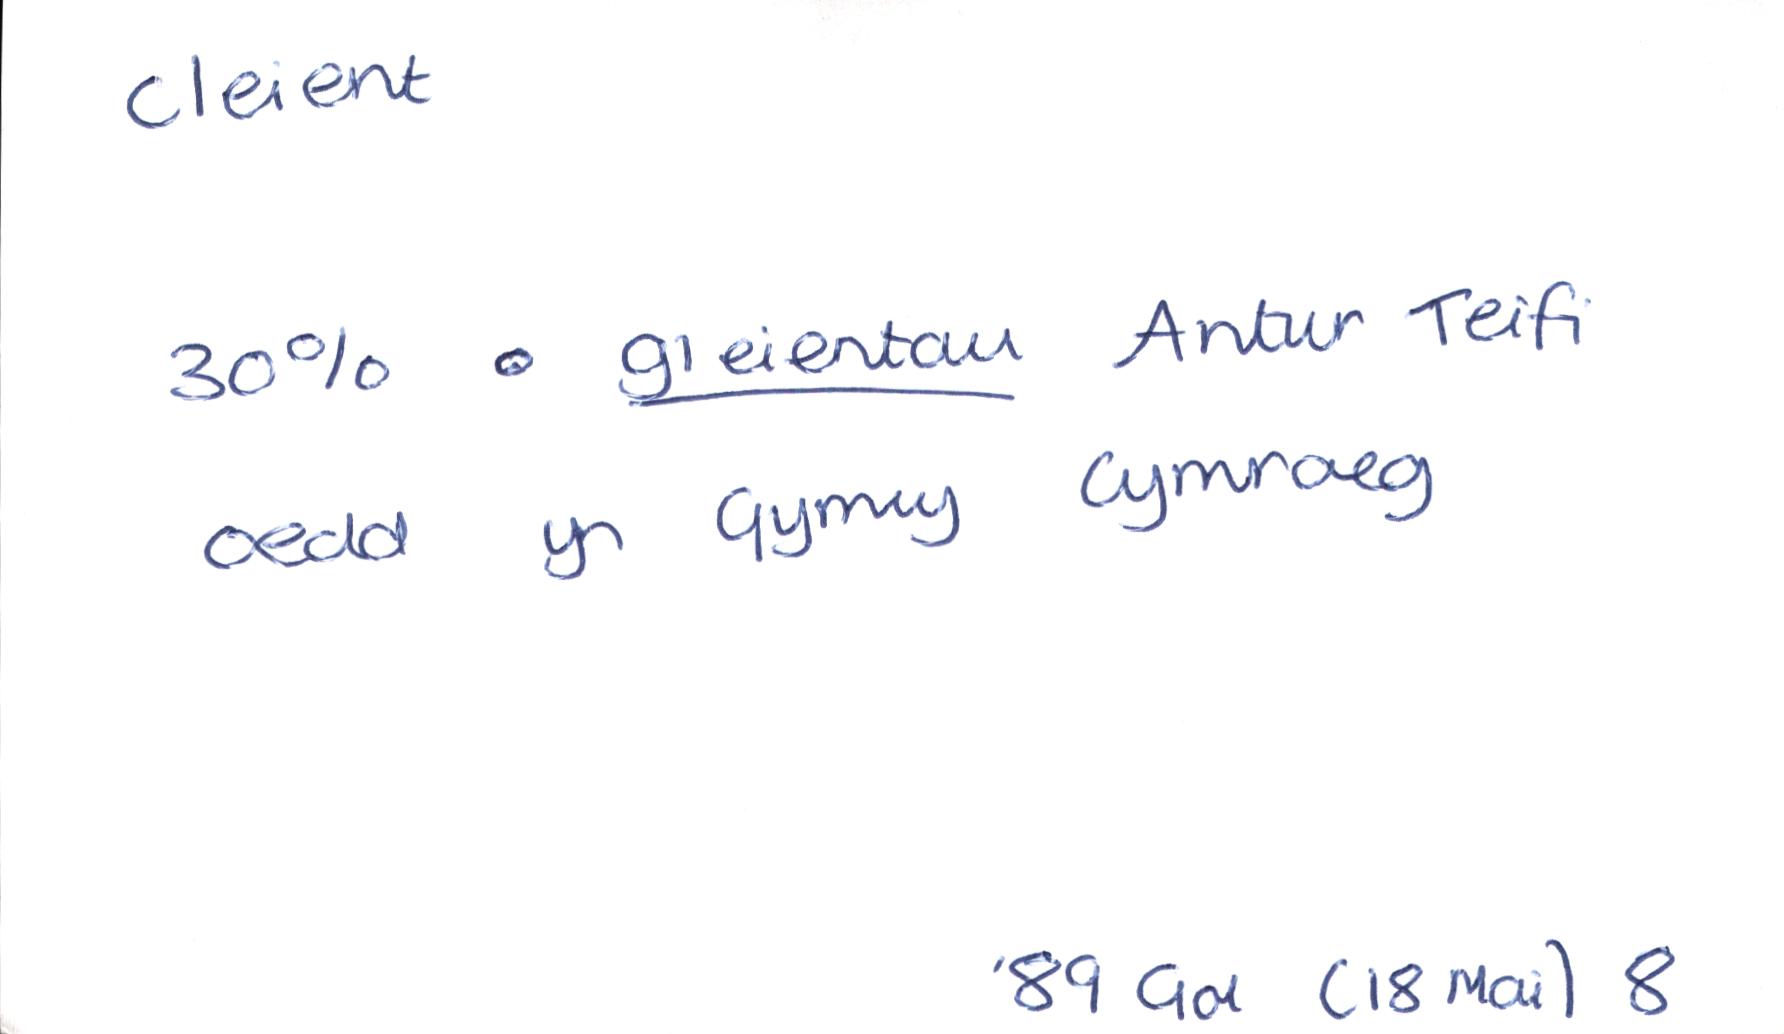 cleient
30% o gleientau Antur Teifi
oedd yn Gymry Cymraeg
'89 Gol (18 Mai) 8